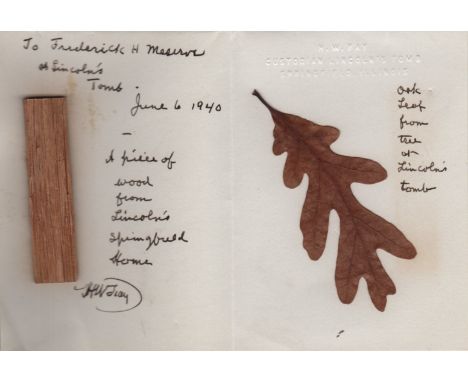 To Frederick H Meserve
at Lincoln's
Tomb.
June 6 1940
—
A piece of
wood
from
Lincoln's
Springfield
Home
HWFay
H. W. FAY
CUSTODIAN LINCOLN'S TOMB
SPRINGFIELD, ILLINOIS
Oak
Leaf
from
tree
at
Lincoln's
tomb